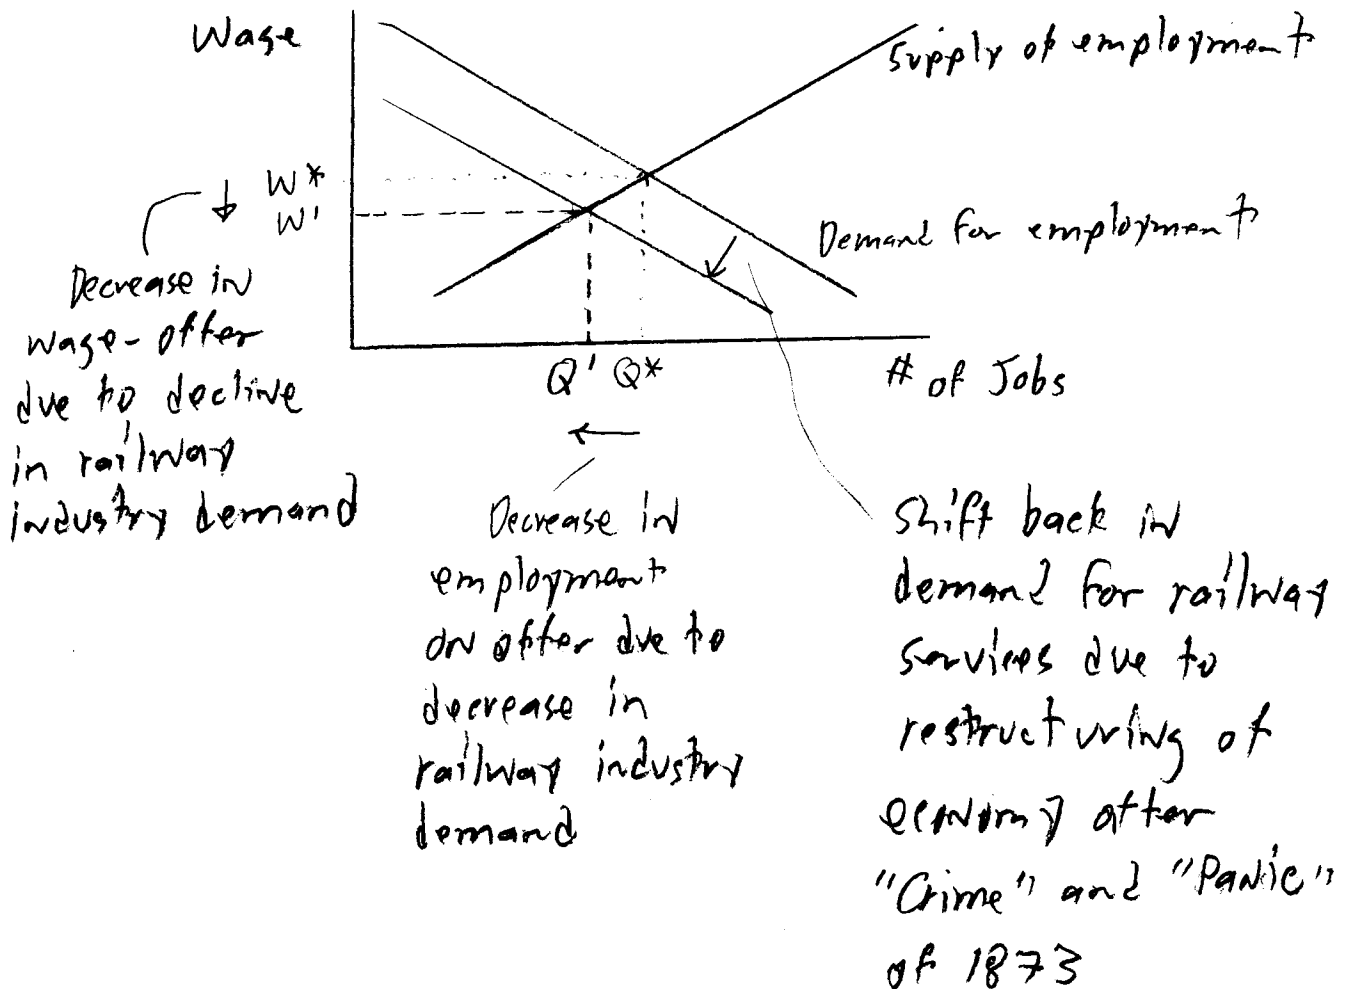 Wage
Supply of employment
W*
W'
Demand for employment
Q' Q*
# of Jobs
Decrease in
wage-offer
due to decline
in railway
industry demand
Decrease in
employment
on offer due to
decrease in
railway industry
demand
Shift back in
demand for railway
services due to
restructuring of
economy after
"Crime" and "Panic"
of 1873